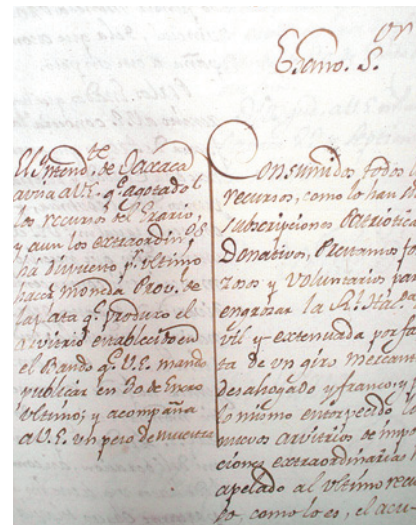 Exmo. S.
El Intend.te de Oaxaca
avisa a V.E. q.e agotados
los recursos del Erario,
y aun los extraordin.os
há dispuesto p.r ultimo
hacer moneda Prov.l de
la plata q.e produxo el
arvitrio establecido en
el Bando q.e V.E. mandó
publicar en 30 de Enero
ultimo; y acompaña
a V.E. un peso de muestra
Consumidos todos l
recursos, como lo han s
subscripciones Patriotica
Donativos, Prestamos fo
zosos y voluntarios par
engrosar la R.l Haz.da
vil y extenuada por fal
ta de un giro mercant
desahogado y franco; y
lo mismo entorpecido l
nuevos arvitrios de impo
ciones extraordinarias h
apelado al ultimo recu
so, como lo es, el acu